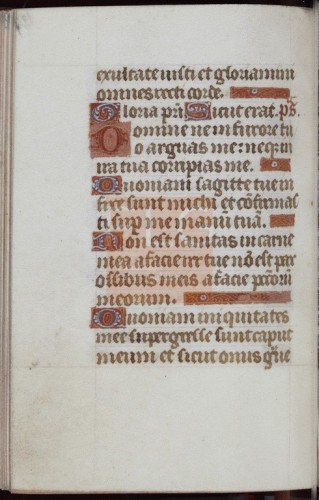 exultate iusti et gloriamini
omnes recti corde.
Gloria pri Sicut erat. ps.
Domine ne in furore tu
o arguas me: neq; in
ira tua corripias me.
Quoniam sagitte tue in
fixe sunt michi et cõfirmas
ti sup me manũ tuã.
Non est sanitas in carne
mea a facie ire tue nõ est pax
ossibus meis a facie pctorũ
meorum.
Quoniam iniquitates
mee supergresse sunt caput
meum et sicut onus gue